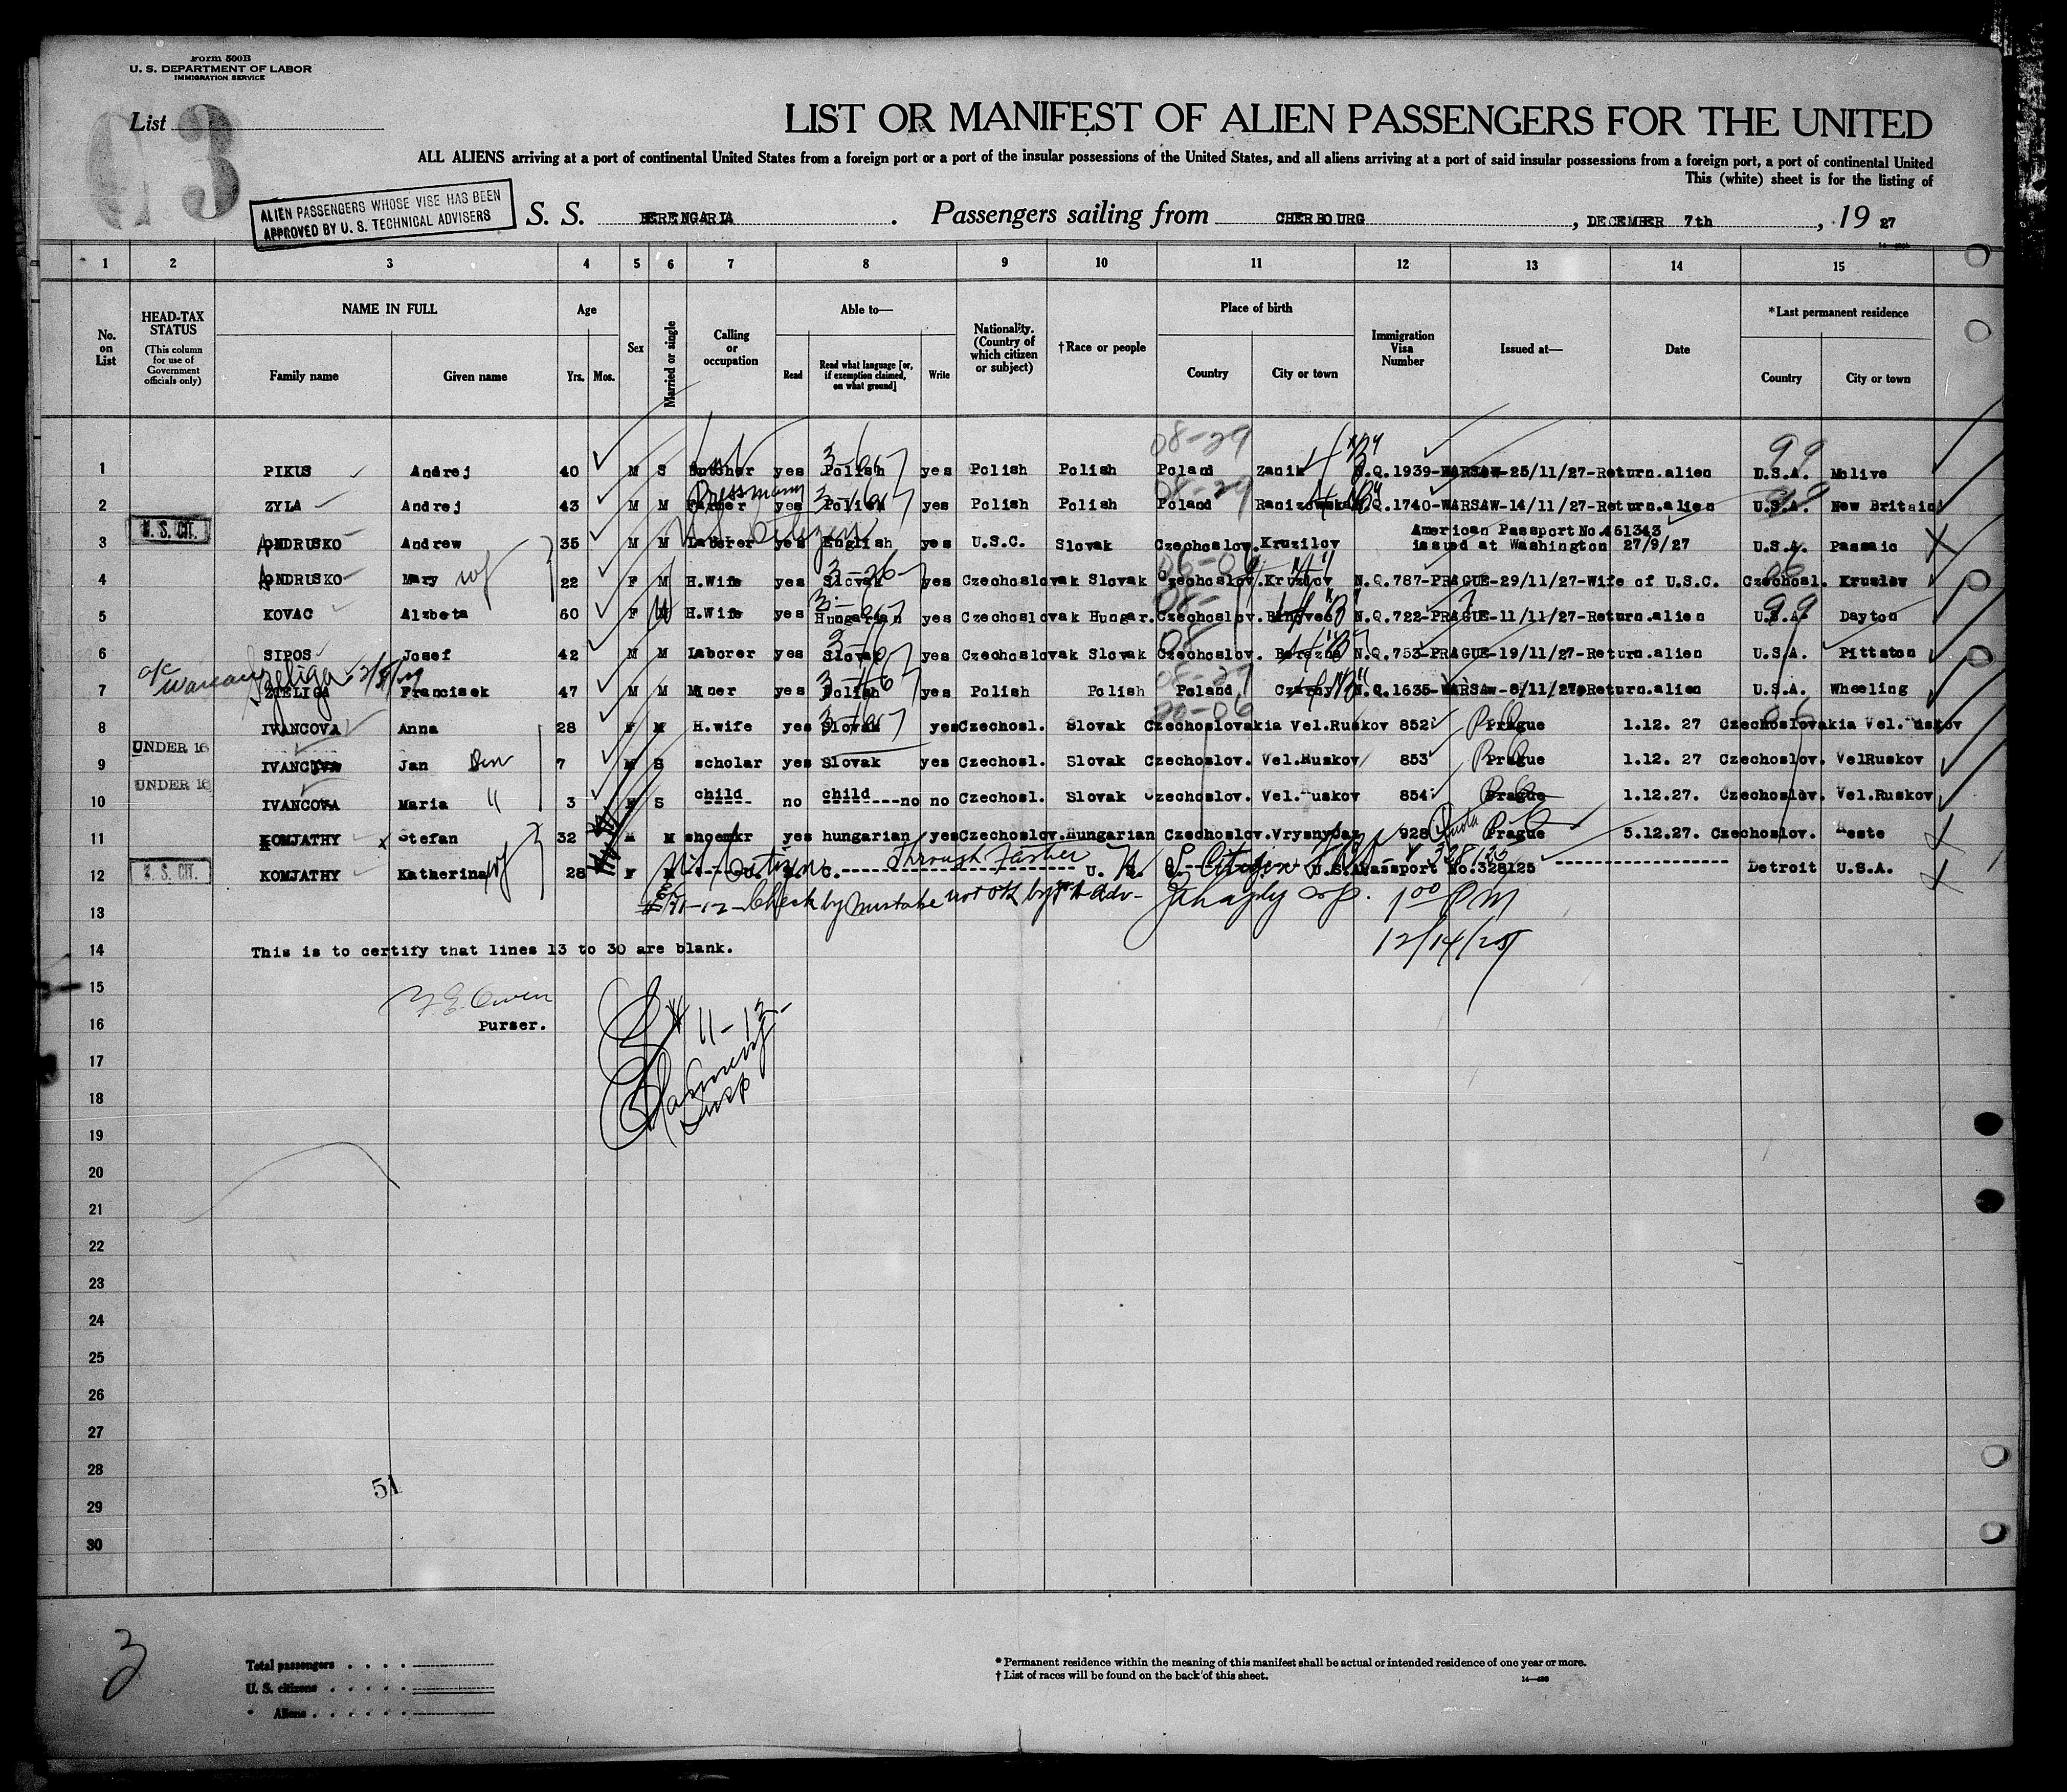 Form 500B
U. S. DEPARTMENT OF LABOR
IMMIGRATION SERVICE
List
3
LIST OR MANIFEST OF ALIEN PASSENGERS FOR THE UNITED
ALL ALIENS arriving at a port of continental United States from a foreign port or a port of the insular possessions of the United States, and all aliens arriving at a port of said insular possessions from a foreign port, a port of continental United
This (white) sheet is for the listing of
ALIEN PASSENGERS WHOSE VISE HAS BEEN
APPROVED BY U. S. TECHNICAL ADVISERS
S. S. BERENGARIA. Passengers sailing from CHERBOURG, DECEMBER 7th, 19 27
1 2 3 4 5 6 7 8 9 10 11 12 13 14 15
No. on List
HEAD-TAX STATUS (This column for use of Government officials only)
NAME IN FULL
Family name Given name
Age
Yrs. Mos.
Sex
Married or single
Calling or occupation
Able to—
Read
Read what language [or, if exemption claimed, on what ground]
Write
Nationality. (Country of which citizen or subject)
†Race or people
Place of birth
Country City or town
Immigration Visa Number
Issued at—
Date
*Last permanent residence
Country City or town
1 PIKUS Andrej 40 M S Butcher yes Polish yes Polish Polish Poland Zanik N.Q.1939-WARSAW-25/11/27-Return.alien U.S.A. Mclive
2 ZYLA Andrej 43 M M yes Polish yes Polish Polish Poland N.Q.1740-WARSAW-14/11/27-Return.alien U.S.A. New Britain
U. S. CIT.
American Passport No.461343
3 ONDRUSKO Andrew 35 M M Laborer yes English yes U.S.C. Slovak Czechoslov. Kruzilov issued at Washington 27/9/27 U.S.A. Passaic
4 ONDRUSKO Mary wf 22 F M H.Wife yes Slovak yes Czechoslovak Slovak Czechoslov. Kruzlov N.Q.787-PRAGUE-29/11/27-Wife of U.S.C. Czechosl. Kruzlov
5 KOVAC Alzbeta 60 F H.Wife yes Hungarian yes Czechoslovak Hungar. Czechoslov. N.Q.722-PRAGUE-11/11/27-Return.alien U.S.A. Dayton
6 SIPOS Josef 42 M M Laborer yes Slovak yes Czechoslovak Slovak Czechoslov. N.Q.753-PRAGUE-19/11/27-Return.alien U.S.A. Pittston
Warsaw Szeliga
7 ZIELIGA Francisek 47 M M Miner yes Polish yes Polish Polish Poland N.Q.1635-WARSAW-8/11/27-Return.alien U.S.A. Wheeling
8 IVANCOVA Anna 28 F M H.wife yes Slovak yes Czechosl. Slovak Czechoslovakia Vel.Ruskov 852 Prague 1.12. 27 Czechoslovakia Vel.Ruskov
UNDER 16
9 Jan 7 M S scholar yes Slovak yes Czechosl. Slovak Czechoslov. Vel.Ruskov 853 Prague 1.12. 27 Czechoslov. VelRuskov
UNDER 16
10 IVANCOVA Maria " 3 F S child no child no no Czechosl. Slovak Czechoslov. Vel.Ruskov 854 Prague 1.12.27. Czechoslov. Vel.Ruskov
11 KOMJATHY Stefan 32 M M shoemkr yes hungarian yes Czechoslov. Hungarian Czechoslov. 928 Quota Prague 5.12.27. Czechoslov.
Through Father
U. S. CIT.
12 KOMJATHY Katherina wf 28 F M U. S. Citizen Passport No.328125 Detroit U.S.A.
13
11-12 Check by mistake not OK by 1.00 PM
12/14/27
14 This is to certify that lines 13 to 30 are blank.
15
Purser.
16
11-12
Insp
17
18
19
20
21
22
23
24
25
26
27
28
51
29
30
3
Total passengers
U. S. citizens
" Aliens
* Permanent residence within the meaning of this manifest shall be actual or intended residence of one year or more.
† List of races will be found on the back of this sheet.